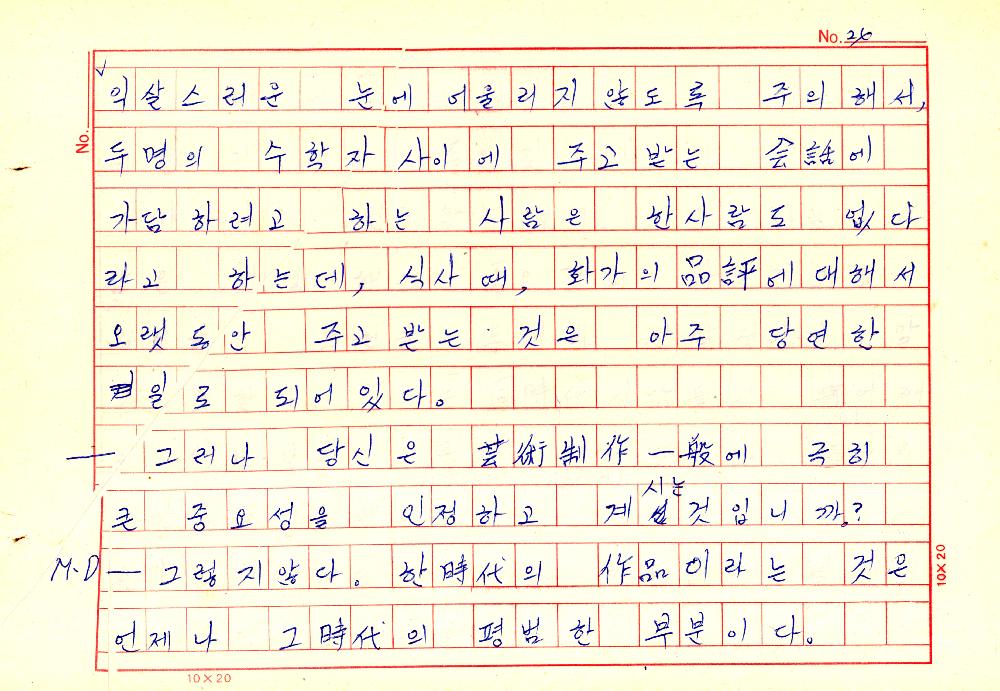 No. 26
No.
익살스러운 눈에 어울리지 않도록 주의해서,
두명의 수학자 사이에 주고 받는 会話에
가담하려고 하는 사람은 한사람도 없다
라고 하는데, 식사때, 화가의 品評에 대해서
오랫동안 주고 받는 것은 아주 당연한
일로 되어있다。
— 그러나 당신은 芸術制作一般에 극히
큰 중요성을 인정하고 계시는 것입니까?
M·D — 그렇지않다。 한時代의 作品이라는 것은
언제나 그時代의 평범한 부분이다。
10×20
10×20